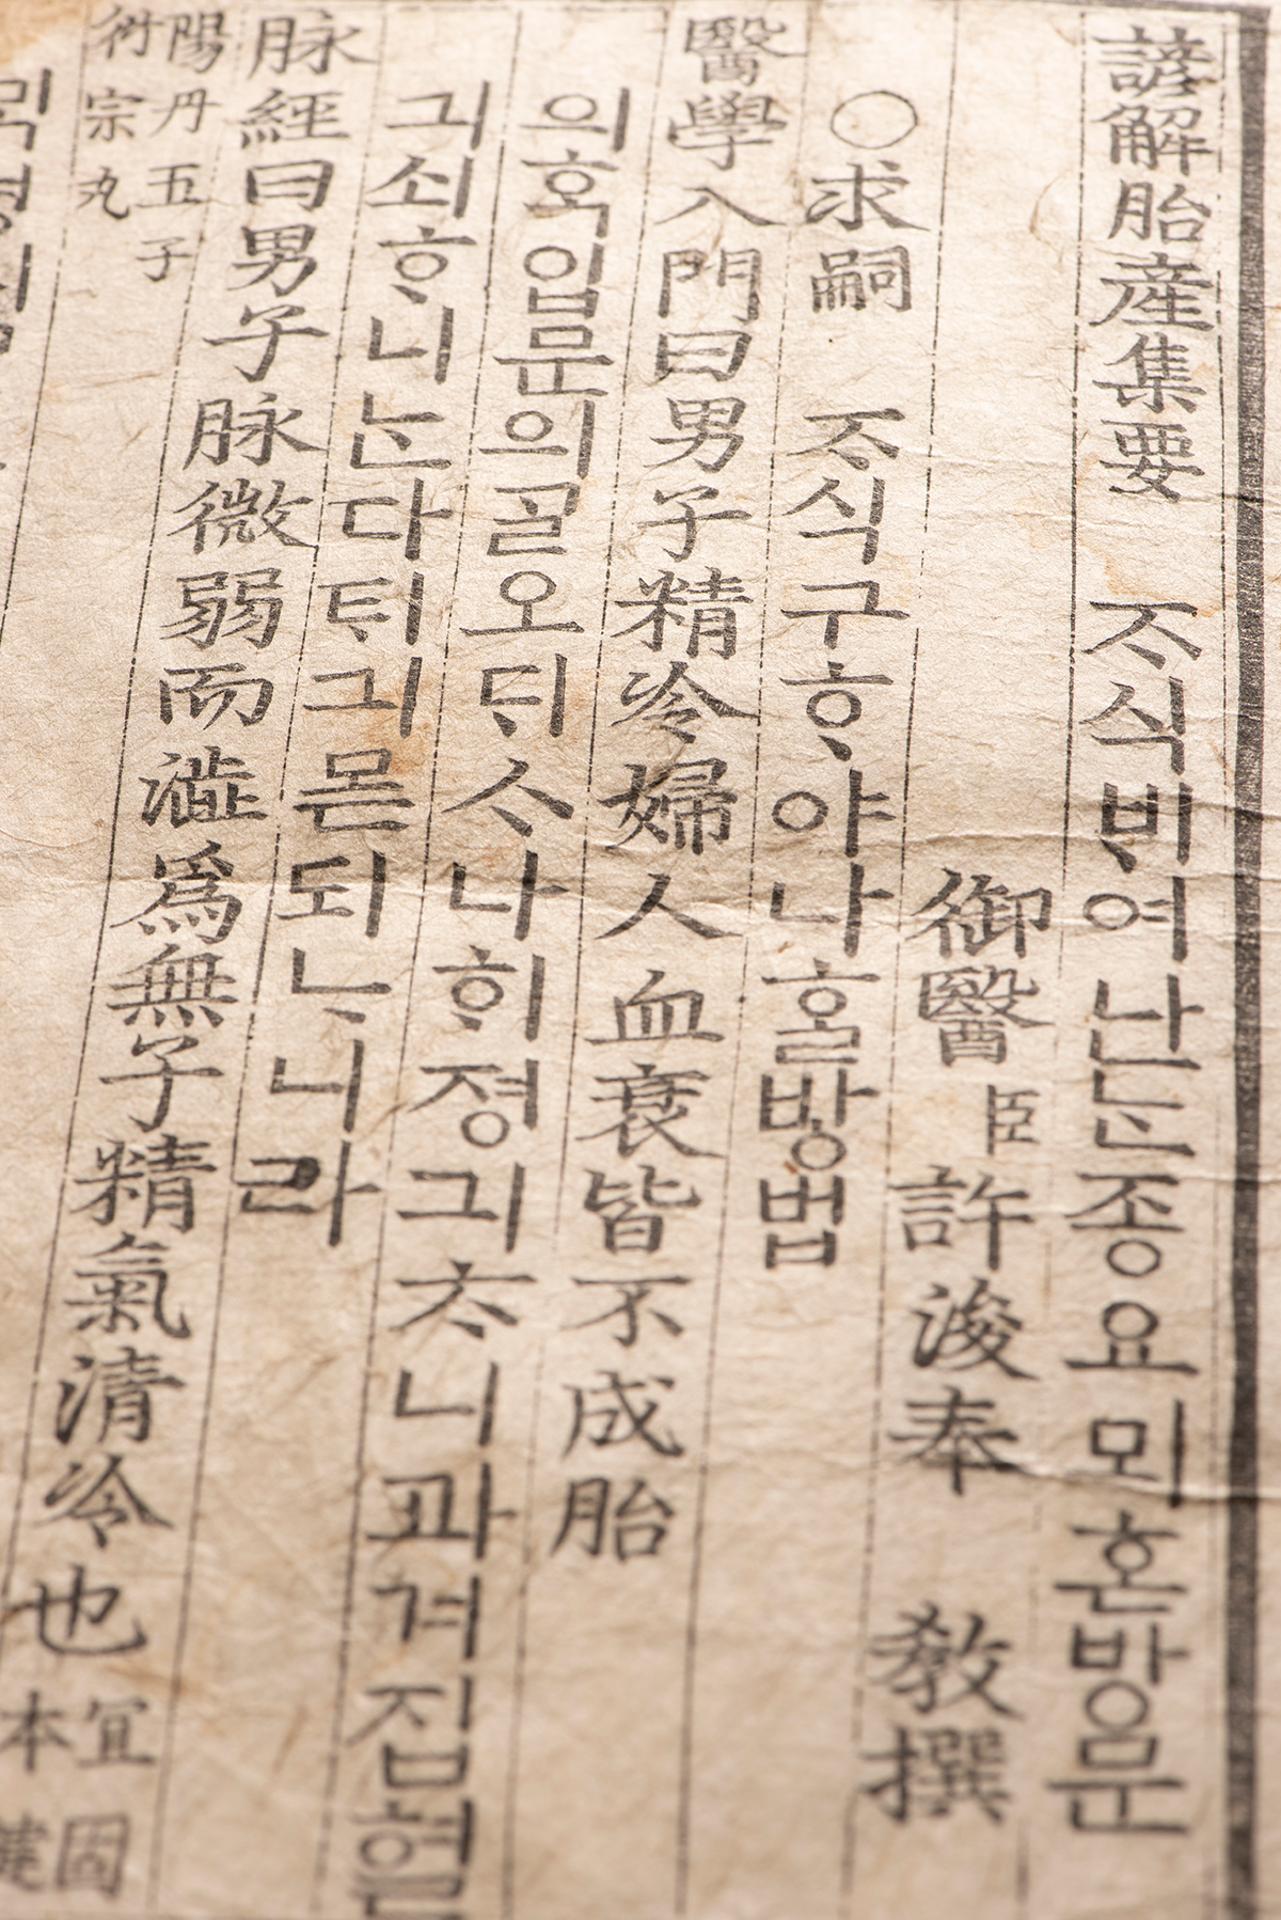 諺解胎産集要 ᄌᆞ식ᄇᆡ여난ᄂᆞᆫ종요뫼혼방문
御醫臣許浚奉 敎撰
○求嗣 ᄌᆞ식구ᄒᆞ야나홀방법
醫學入門曰男子精冷婦人血衰皆不成胎
의혹입문의골오ᄃᆡᄉᆞ나ᄒᆡ졍긔ᄎᆞ니과겨집혈
긔쇠ᄒᆞ니ᄂᆞᆫ다ᄐᆡ긔몯되ᄂᆞ니라
脉經曰男子脉微弱而澁爲無子精氣清冷也宜固本健
陽丹五子衍宗丸